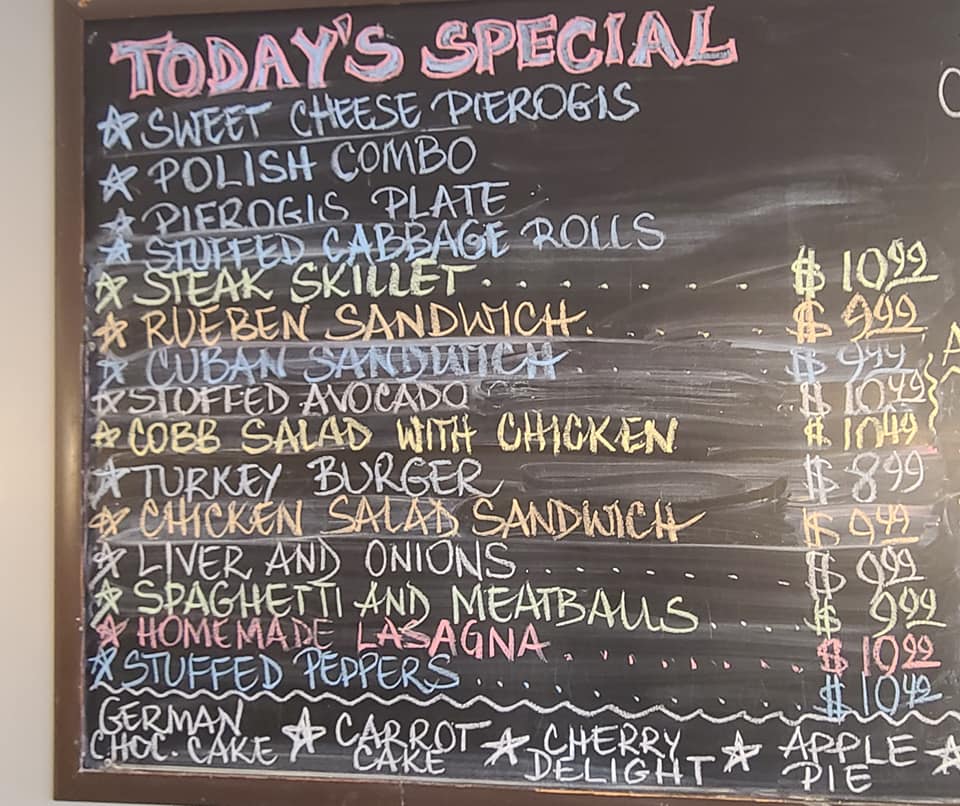 TODAY'S SPECIAL
SWEET CHEESE PIEROGIS
POLISH COMBO
PIEROGIS PLATE
STUFFED CABBAGE ROLLS
STEAK SKILLET . . . . . . . $10.99
RUEBEN SANDWICH . . . . . $9.99
CUBAN SANDWICH . . . . . $9.99
STOFFED AVOCADO $10.49
COBB SALAD WITH CHICKEN $10.49
TURKEY BURGER $8.99
CHICKEN SALAD SANDWICH $9.49
LIVER AND ONIONS . . . . . . . . $9.99
SPAGHETTI AND MEATBALLS . . . . $9.99
HOMEMADE LASAGNA . . . . . . . . $10.99
STUFFED PEPPERS . . . . . . . . $10.49
GERMAN CHOC. CAKE CARROT CAKE CHERRY DELIGHT APPLE PIE